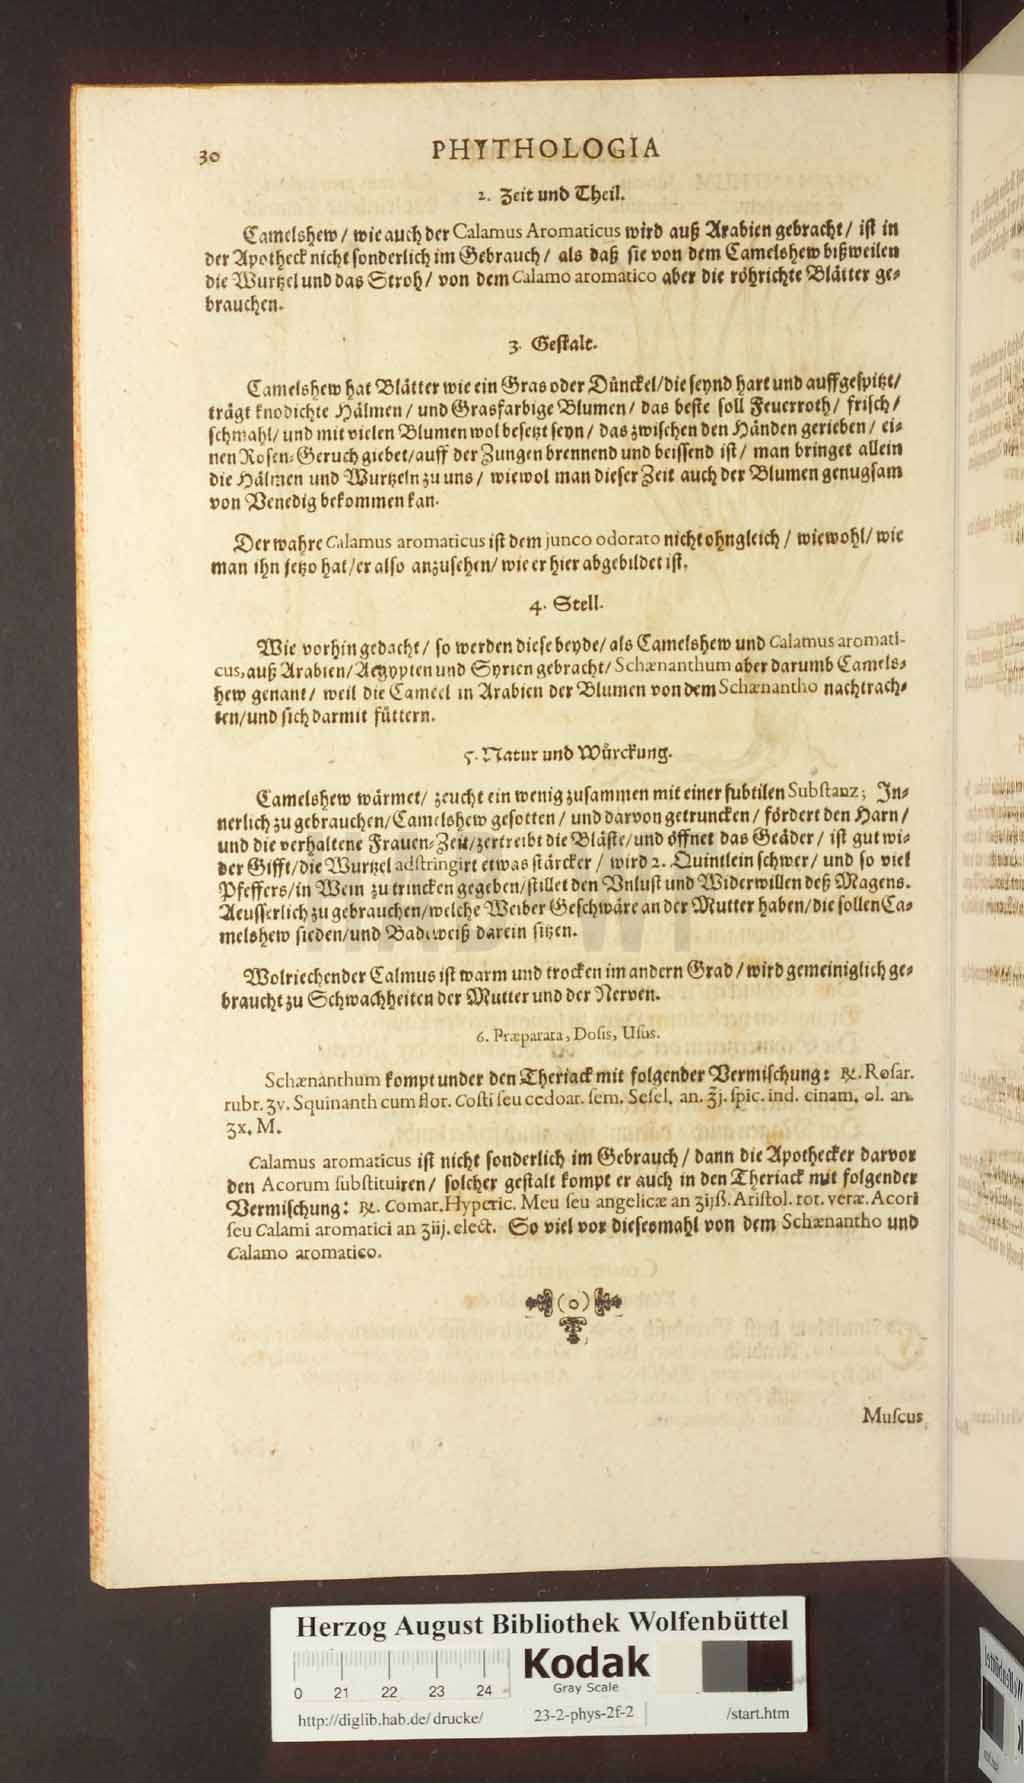 30 PHYTHOLOGIA
2. Zeit und Theil.
Camelshew / wie auch der Calamus Aromaticus wird auß Arabien gebracht / ist in
der Apotheck nicht sonderlich im Gebrauch / als daß sie von dem Camelshew bißweilen
die Wurtzel und das Stroh / von dem Calamo aromatico aber die röhrichte Blätter ge-
brauchen.
3. Gestalt.
Camelshew hat Blätter wie ein Gras oder Dünckel/die seynd hart und auffgespitzt/
trägt knodichte Hälmen / und Grasfarbige Blumen / das beste soll Feuerroth / frisch /
schmahl / und mit vielen Blumen wol besetzt seyn / das zwischen den Händen gerieben / ei-
nen Rosen-Geruch giebet/auff der Zungen brennend und beissend ist / man bringet allein
die Hälmen und Wurtzeln zu uns / wiewol man dieser Zeit auch der Blumen genugsam
von Venedig bekommen kan.
Der wahre Calamus aromaticus ist dem junco odorato nicht ohngleich / wiewohl / wie
man ihn jetzo hat/er also anzusehen/ wie er hier abgebildet ist.
4. Stell.
Wie vorhin gedacht / so werden diese beyde/ als Camelshew und Calamus aromati-
cus, auß Arabien/ Aegypten und Syrien gebracht/ Schænanthum aber darumb Camels-
hew genant / weil die Cameel in Arabien der Blumen von dem Schænantho nachtrach-
ten/und sich darmit füttern.
5. Natur und Würckung.
Camelshew wärmet/ zeucht ein wenig zusammen mit einer subtilen Substanz; In-
nerlich zu gebrauchen/Camelshew gesotten / und darvon getruncken / fördert den Harn /
und die verhaltene Frauen-Zeit/zertreibt die Bläste/und öffnet das Geäder / ist gut wi-
der Gifft/die Wurtzel adstringirt etwas stärcker / wird 2. Quintlein schwer / und so viel
Pfeffers/in Wein zu trincken gegeben/stillet den Vnlust und Widerwillen deß Magens.
Aeusserlich zu gebrauchen/welche Weiber Geschwäre an der Mutter haben/die sollen Ca-
melshew sieden/und Badsweiß darein sitzen.
Wolriechender Calmus ist warm und trocken im andern Grad / wird gemeiniglich ge-
braucht zu Schwachheiten der Mutter und der Nerven.
6. Præparata, Dosis, Usus.
Schænanthum kompt under den Theriack mit folgender Vermischung: ℞. Rosar.
rubr. ʒv. Squinanth cum flor. Costi seu cedoar. sem. Sesel. an. ℥j. spic. ind. cinam. ol. an.
ʒx. M.
Calamus aromaticus ist nicht sonderlich im Gebrauch / dann die Apothecker darvor
den Acorum substituiren / solcher gestalt kompt er auch in den Theriack mit folgender
Vermischung: ℞. Comar. Hyperic. Meu seu angelicæ an ʒijß. Aristol. rot. veræ. Acori
seu Calami aromatici an ʒiij. elect. So viel vor diesesmahl von dem Schænantho und
Calamo aromatico.
(o)
Muscus
Herzog August Bibliothek Wolfenbüttel
0 21 22 23 24
Kodak
Gray Scale
http://diglib.hab.de/drucke/ 23-2-phys-2f-2 /start.htm